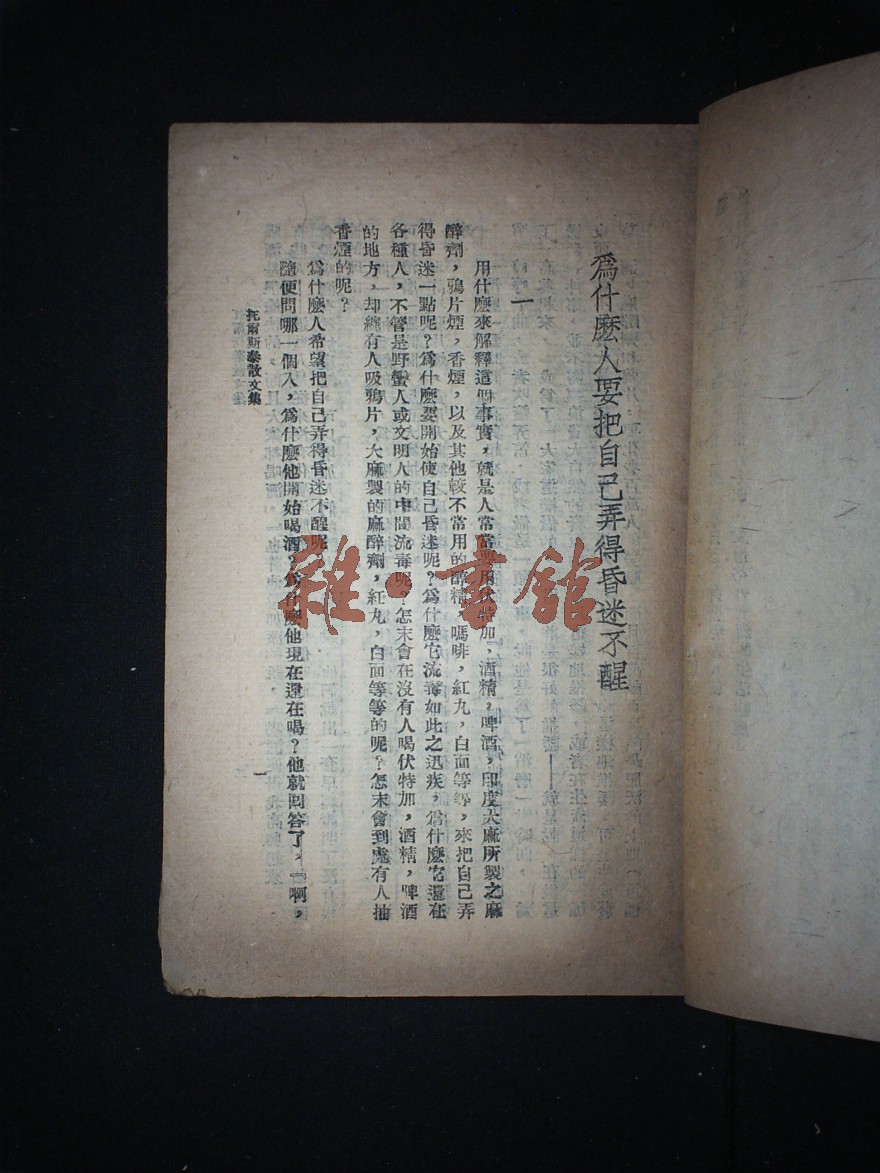 為什麽人要把自己弄得昏迷不醒
一
用什麽來解釋這個事實，就是人常常要用伏特加，酒精，啤酒，印度大麻所製之麻
醉劑，鴉片煙，香煙，以及其他較不常用的醉精，嗎啡，紅丸，白面等等，來把自己弄
得昏迷一點呢？為什麽要開始使自己昏迷呢？為什麽它流毒如此之迅疾，為什麽它還在
各種人，不管是野蠻人或文明人的中間流毒呢？怎末會在沒有人喝伏特加，酒精，啤酒
的地方，却纔有人吸鴉片，大麻製的麻醉劑，紅丸，白面等等的呢？怎末會到處有人抽
香煙的呢？
為什麽人希望把自己弄得昏迷不醒呢？
隨便問哪一個人，為什麽他開始喝酒？為什麽他現在還在喝？他就回答了，『啊，
托爾斯泰散文集
雜·書館